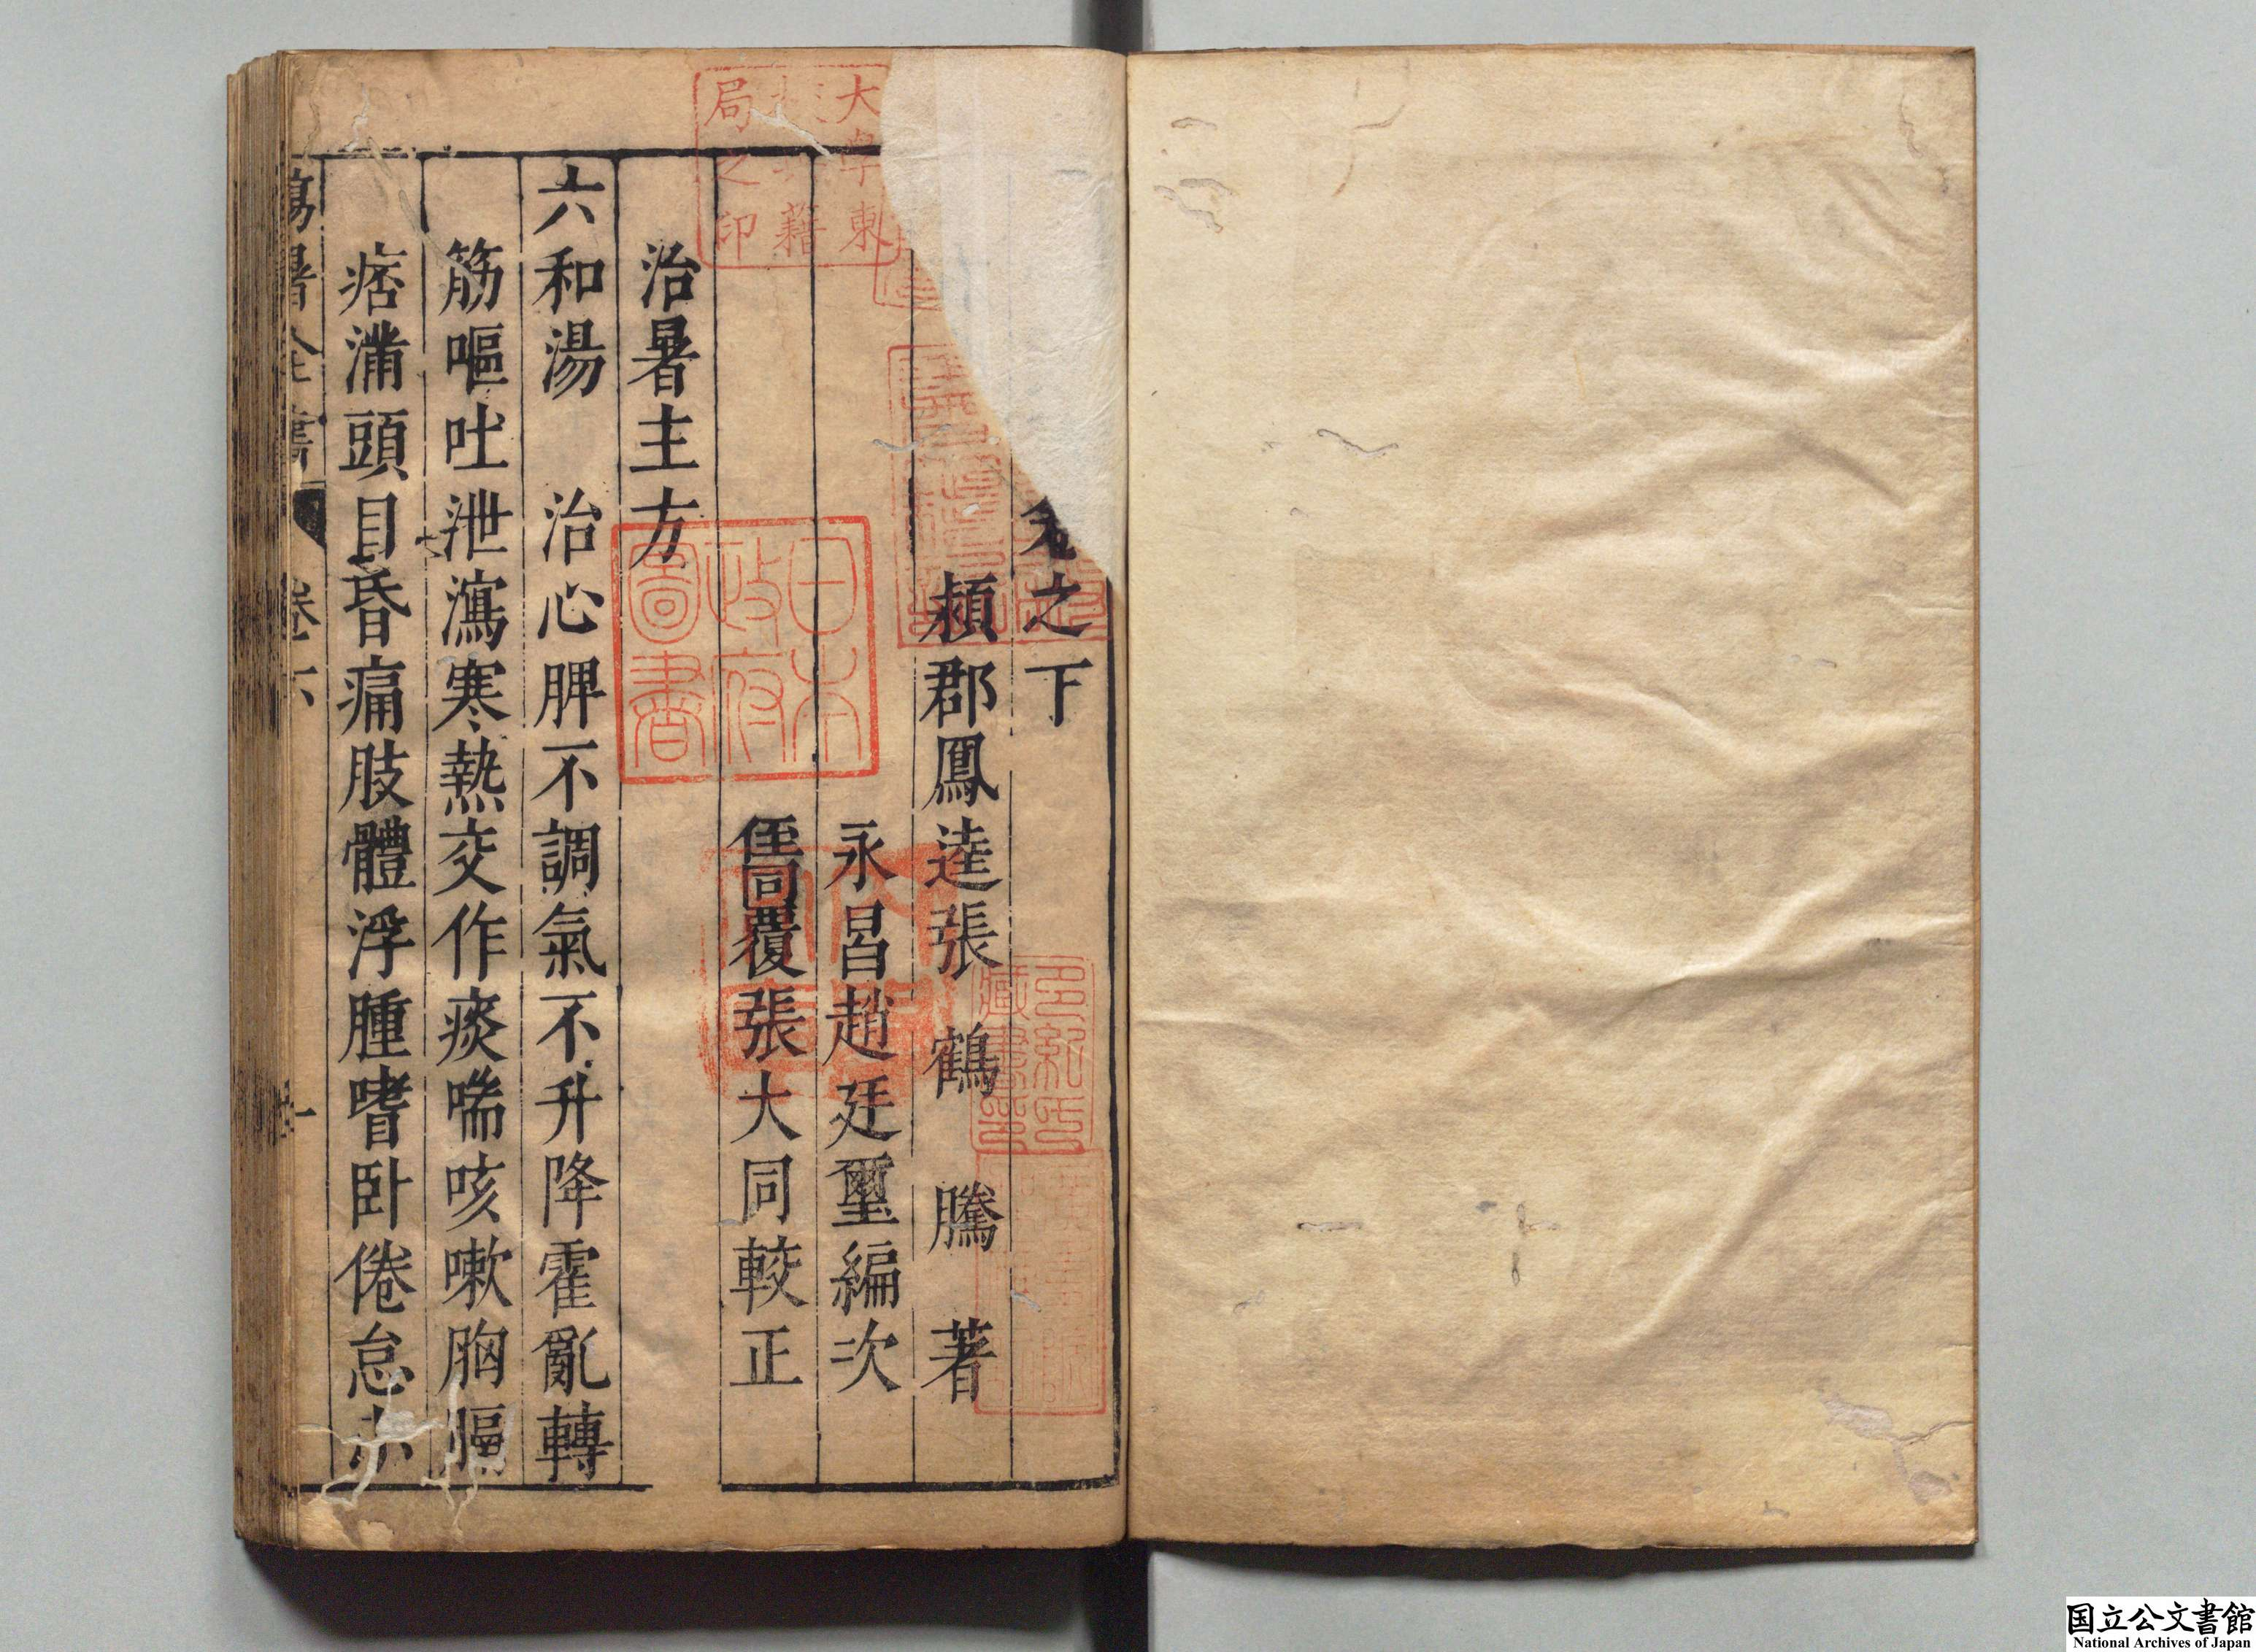 之下
潁郡鳳逵張鶴騰著
永昌趙廷璽編次
張大同較正
治暑主方
六和湯 治心脾不調氣不升降霍亂轉
筋嘔吐泄瀉寒熱交作痰喘咳嗽胸膈
痞滿頭目昏痛肢體浮腫嗜卧倦怠
暑全書 卷下
日本政府圖書
大學東
籍
局之印
国立公文書館
National Archives of Japan